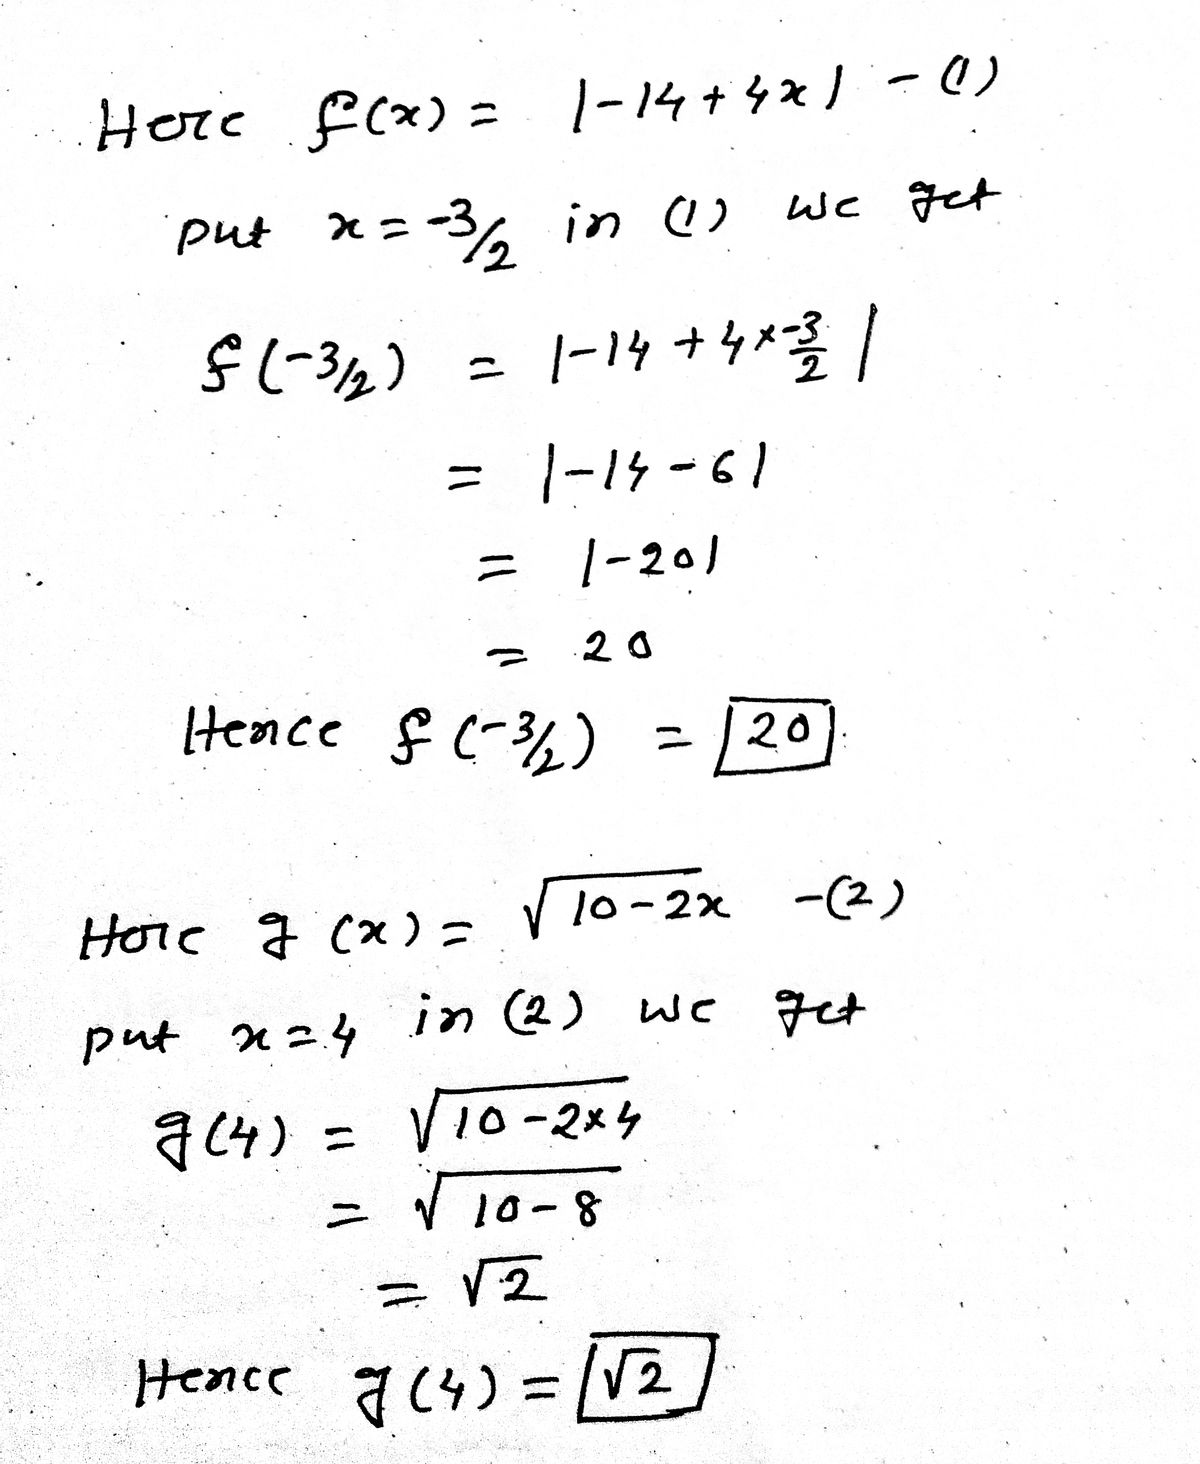 Here f(x) = |-14+4x| - (1)
put x = -3/2 in (1) we get
f(-3/2) = |-14 + 4×-3/2|
= |-14-6|
= |-20|
= 20
Hence f(-3/2) = 20.
Here g(x) = √10-2x -(2)
put x=4 in (2) we get
g(4) = √10-2×4
= √10-8
= √2
Hence g(4) = √2